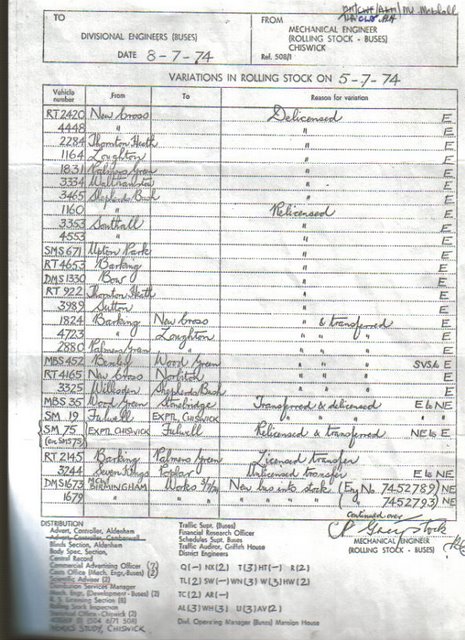 TO
DIVISIONAL ENGINEERS (BUSES)
DATE 8-7-74
FROM
MECHANICAL ENGINEER
(ROLLING STOCK - BUSES)
CHISWICK
Ref. 508/1
VARIATIONS IN ROLLING STOCK ON 5-7-74
Vehicle number From To Reason for variation
RT2420 New Cross Delicensed E
4448 " " E
2284 Thornton Heath " E
1164 Loughton " E
1831 Palmers Green " E
3334 Walthamstow " E
3465 Shepherds Bush " E
1160 " Relicensed E
3353 Southall " E
4553 " " E
SMS671 Upton Park " E
RT4653 Barking " E
DMS1330 Bow " E
RT922 Thornton Heath " E
3989 Sutton " E
1824 Barking New Cross " & transferred E
4723 " Loughton " " " E
2880 Palmers Green " " " " E
MBS452 Bexley Wood Green " " " SVS to E
RT4165 New Cross Norbiton " " " E
3325 Willesden Shepherds Bush " " " E
MBS35 Wood Green Stonebridge Transferred & delicensed E to NE
SM 19 Fulwell EXPTL CHISWICK " " "
SM 75 (EXPTL CHISWICK Fulwell Relicensed & transferred NE to E
RT2145 Barking Palmers Green Licensed transfer E
3244 Seven Kings Poplar Unlicensed transfer E to NE
DMS1673 BIRMINGHAM Works New bus into stock (Eng No 7452789) NE
1679 " " " " " " 7452793) NE
continued over
MECHANICAL ENGINEER
(ROLLING STOCK - BUSES)
DISTRIBUTION
Advert. Controller, Aldenham
Advert. Controller, Camberwell
Blinds Section, Aldenham
Body Spec. Section,
Central Record
Commercial Advertising Officer
Costs Office (Mech. Engr, Buses) (2)
Scientific Adviser (2)
Services Manager
Mech. Engr. (Development - Buses) (2)
R. S. Licensing Section (8)
Rolling Stock Inspection
Office - Chiswick (2)
WORKS STUDY, CHISWICK
Traffic Supt. (Buses)
Financial Research Officer
Schedules Supt. Buses
Traffic Auditor, Griffith House
District Engineers
Q(-) NX(2) T(3) HT(-) R(2)
TL(2) SW(-) WN(3) W(3) HW(2)
TC(2) AR(-)
AL(3) WH(3) U(3) AV(2)
Divl. Operating Manager (Buses) Mansion House